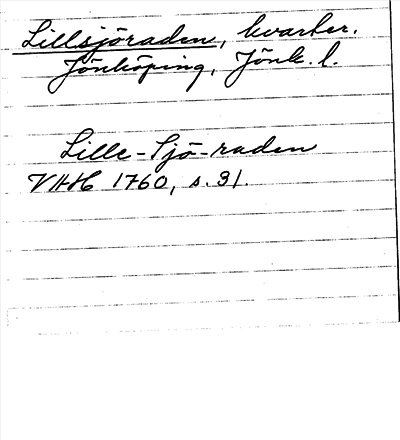 Lillsjöraden, kvarter.
Jönköping, Jönk. l.
Lille-Sjö-raden
VHH 1760, s. 31.